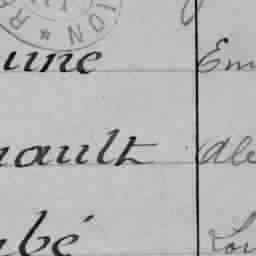 une Em
nault Ale
bé Lou